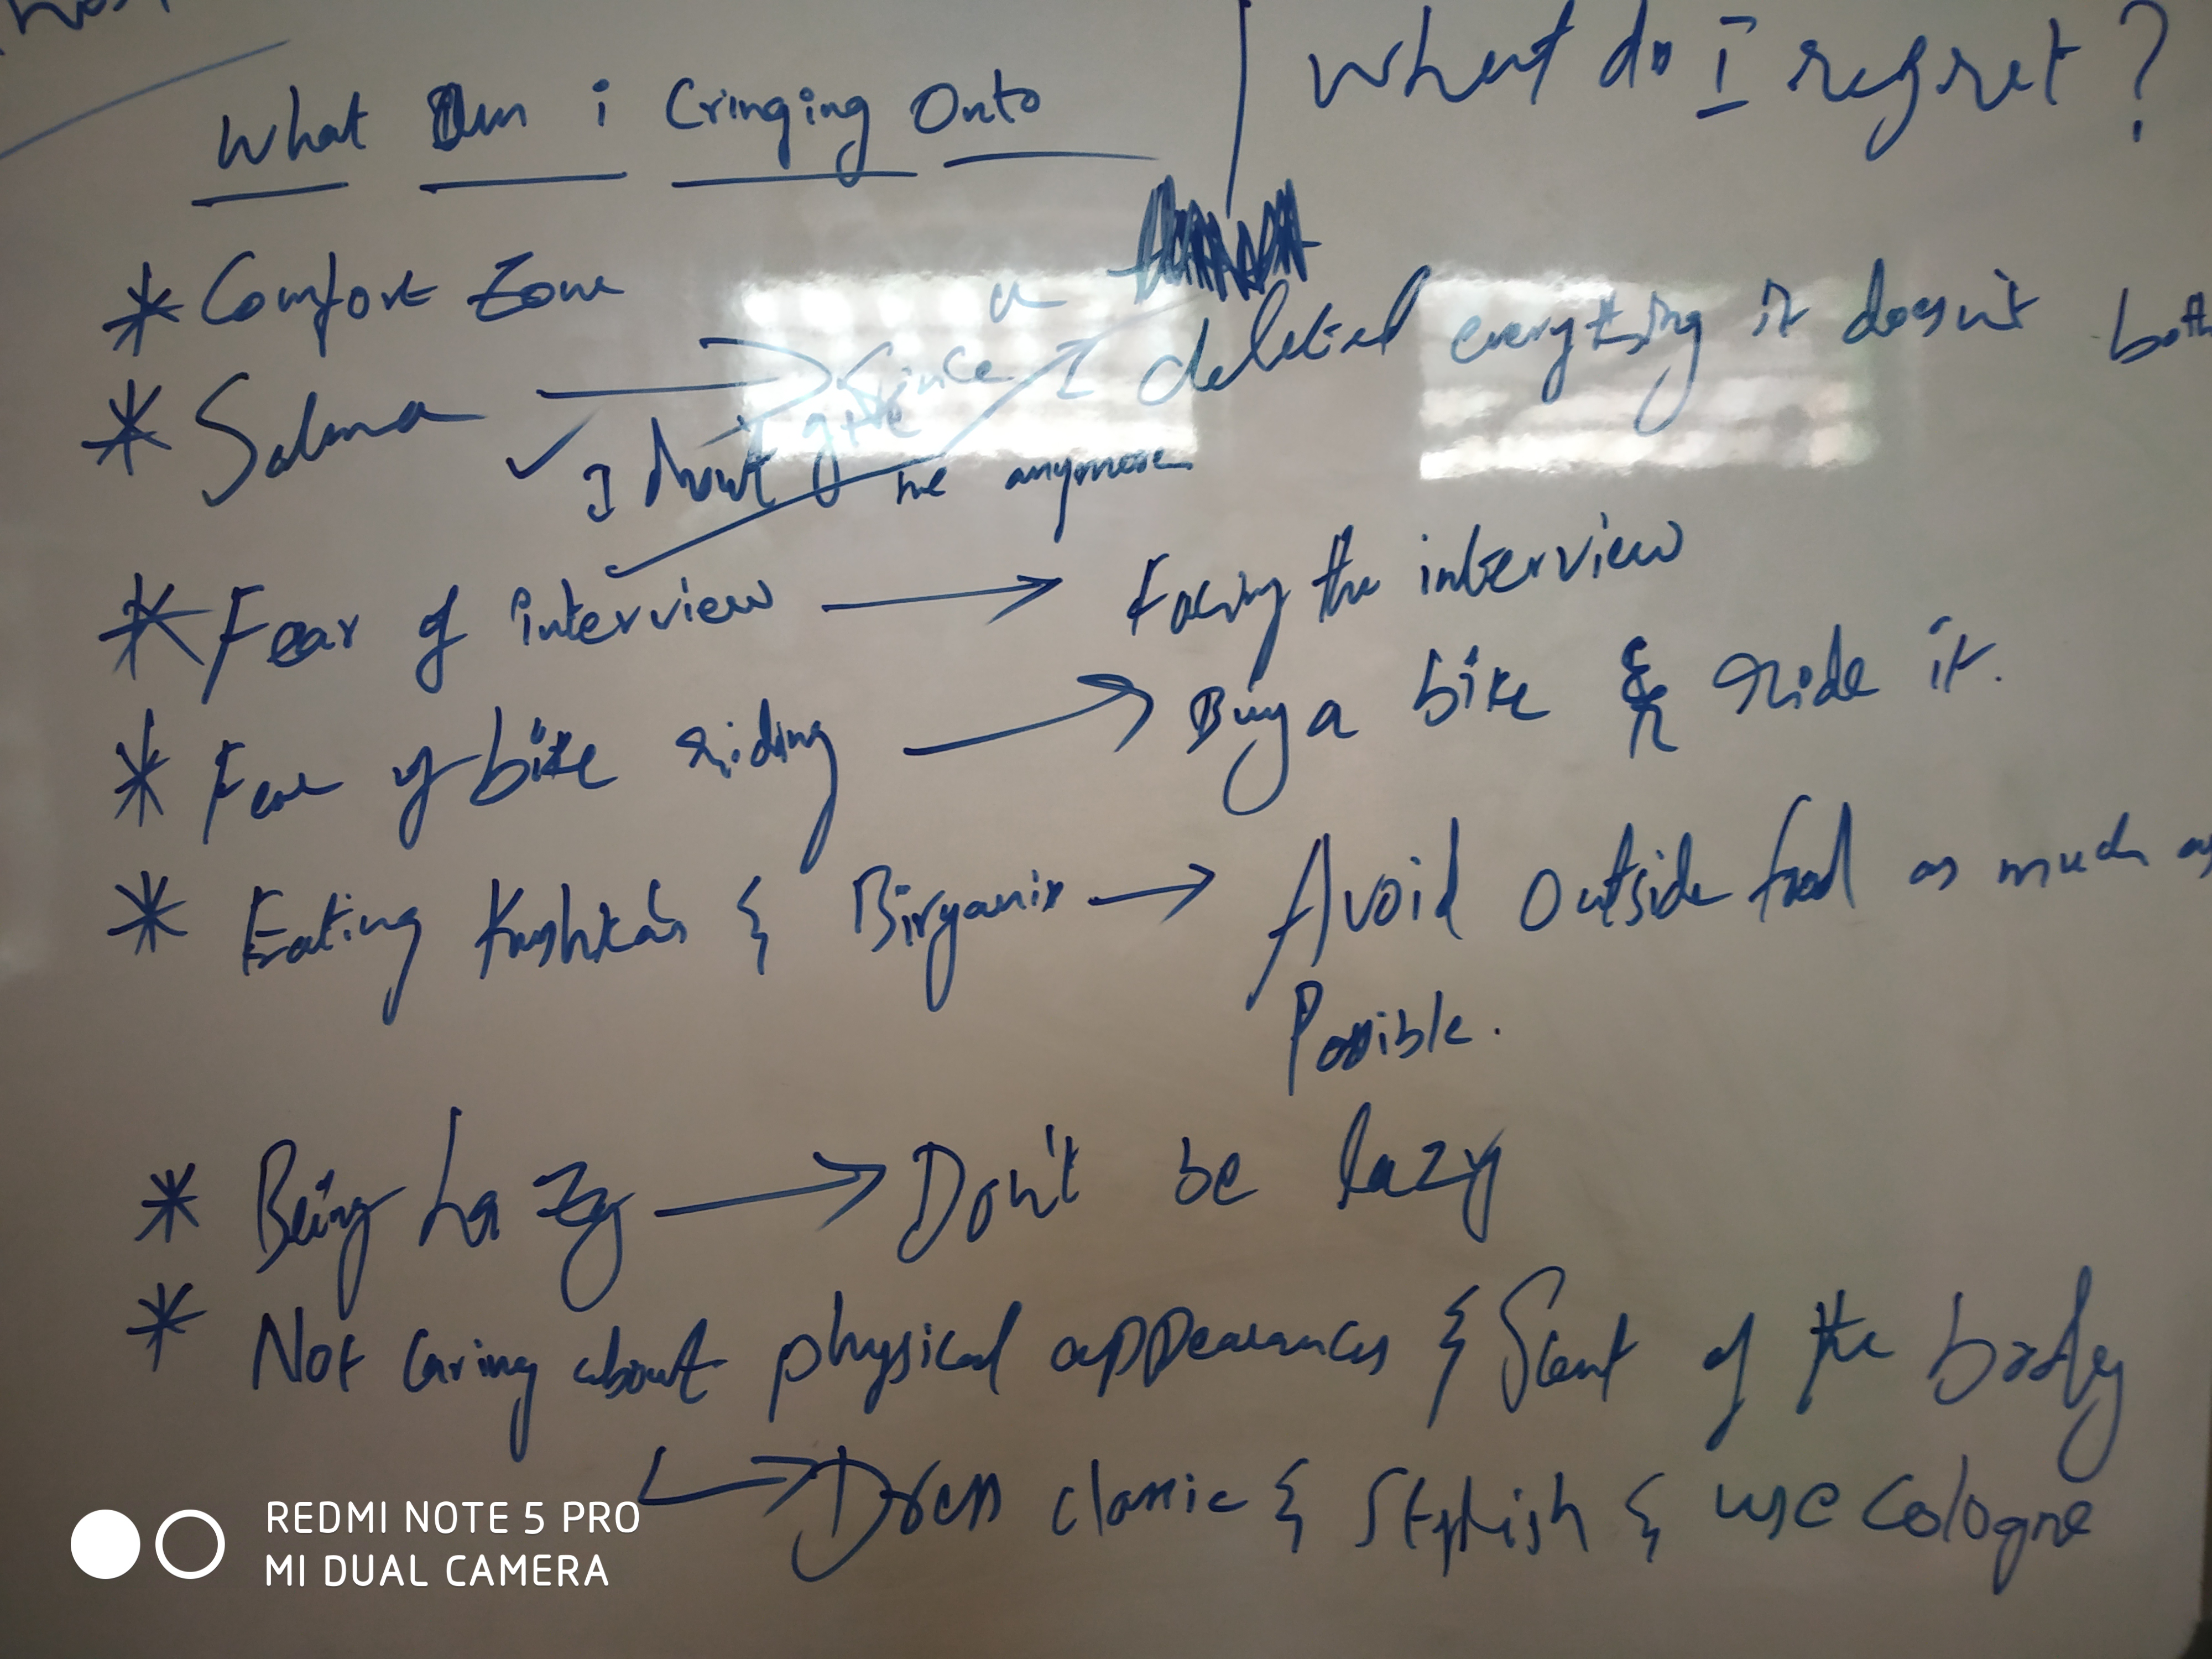 What Am i Cringing Onto
What do I regret ?
* Comfort Zone
* Salma → Since I deleted everything it doesn't
✓ I don't give a
me anymore
* Fear of interview → Facing the interview
* Fear of bike riding → Buy a bike & ride it.
* Eating Kushka's & Biryanis → Avoid Outside food as much as
Possible.
* Being Lazy → Don't be lazy
* Not Caring about physical appearances & Scent of the body
→ Dress classic & Stylish & use Cologne
REDMI NOTE 5 PRO
MI DUAL CAMERA